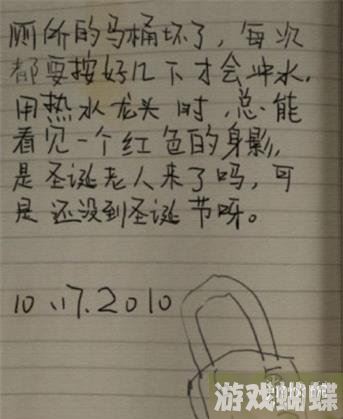 厕所的马桶坏了，每次
都要按好几下才会冲水，
用热水龙头时，总能
看见一个红色的身影，
是圣诞老人来了吗，可
是还没到圣诞节呀。
10.17.2010
游戏蝴蝶